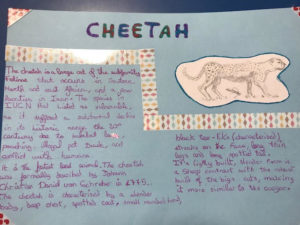 CHEETAH
The cheetah is a large cat of the subfamily
Felinae that occurs in Southern,
North and east Africa, and a few
localities in Iran. The species is
IUCN Red Listed as vulnerable,
as it suffered a substantial decline
in its historic range the 20th
century due to habitat loss,
poaching, illegal pet trade, and
conflict with humans
It is the fastest land animal. The cheetah
was formally described by Johann
Christian Daniel von Schreber in 1775.
The cheetah is characterised by a slender
body, deep chest, spotted coat, small rounded head,
black tear-like
streaks on the face, long thin
legs and long spotted tail.
Its lightly built, slender form is
a sharp contrast with the robust
build of the big cats, making
it more similar to the cougar.